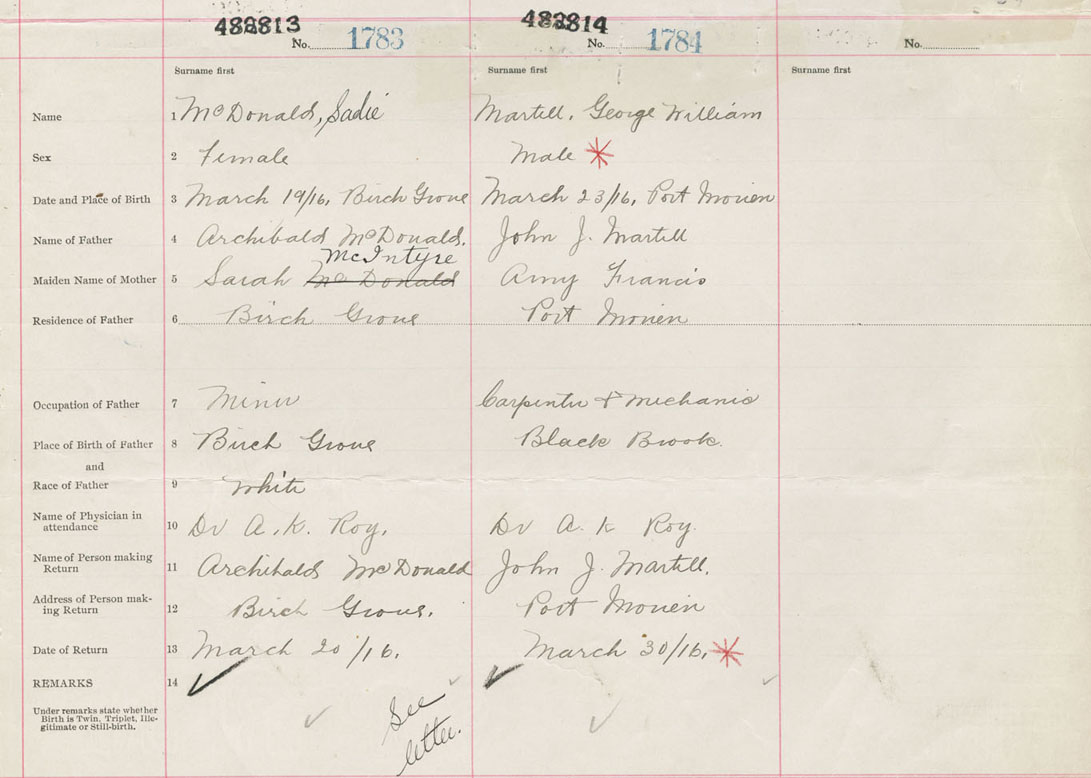 482813 482814
No. 1783 No. 1784 No.
Surname first Surname first Surname first
Name 1 McDonald, Sadie Martell, George William
Sex 2 Female Male *
Date and Place of Birth 3 March 19/16, Birch Grove March 23/16, Port Morien
Name of Father 4 Archibald McDonald. John J. Martell
McIntyre
Maiden Name of Mother 5 Sarah McDonald Amy Francis
Residence of Father 6 Birch Grove Port Morien
Occupation of Father 7 Miner Carpenter & Mechanic
Place of Birth of Father 8 Birch Grove Black Brook.
and
Race of Father 9 White
Name of Physician in
attendance 10 Dr A. K. Roy. Dr A. K Roy.
Name of Person making
Return 11 Archibald McDonald John J. Martell.
Address of Person mak-
ing Return 12 Birch Grove. Port Morien
Date of Return 13 March 20/16. March 30/16. *
REMARKS 14
Under remarks state whether
Birth is Twin, Triplet, Ille-
gitimate or Still-birth.
See
letter.